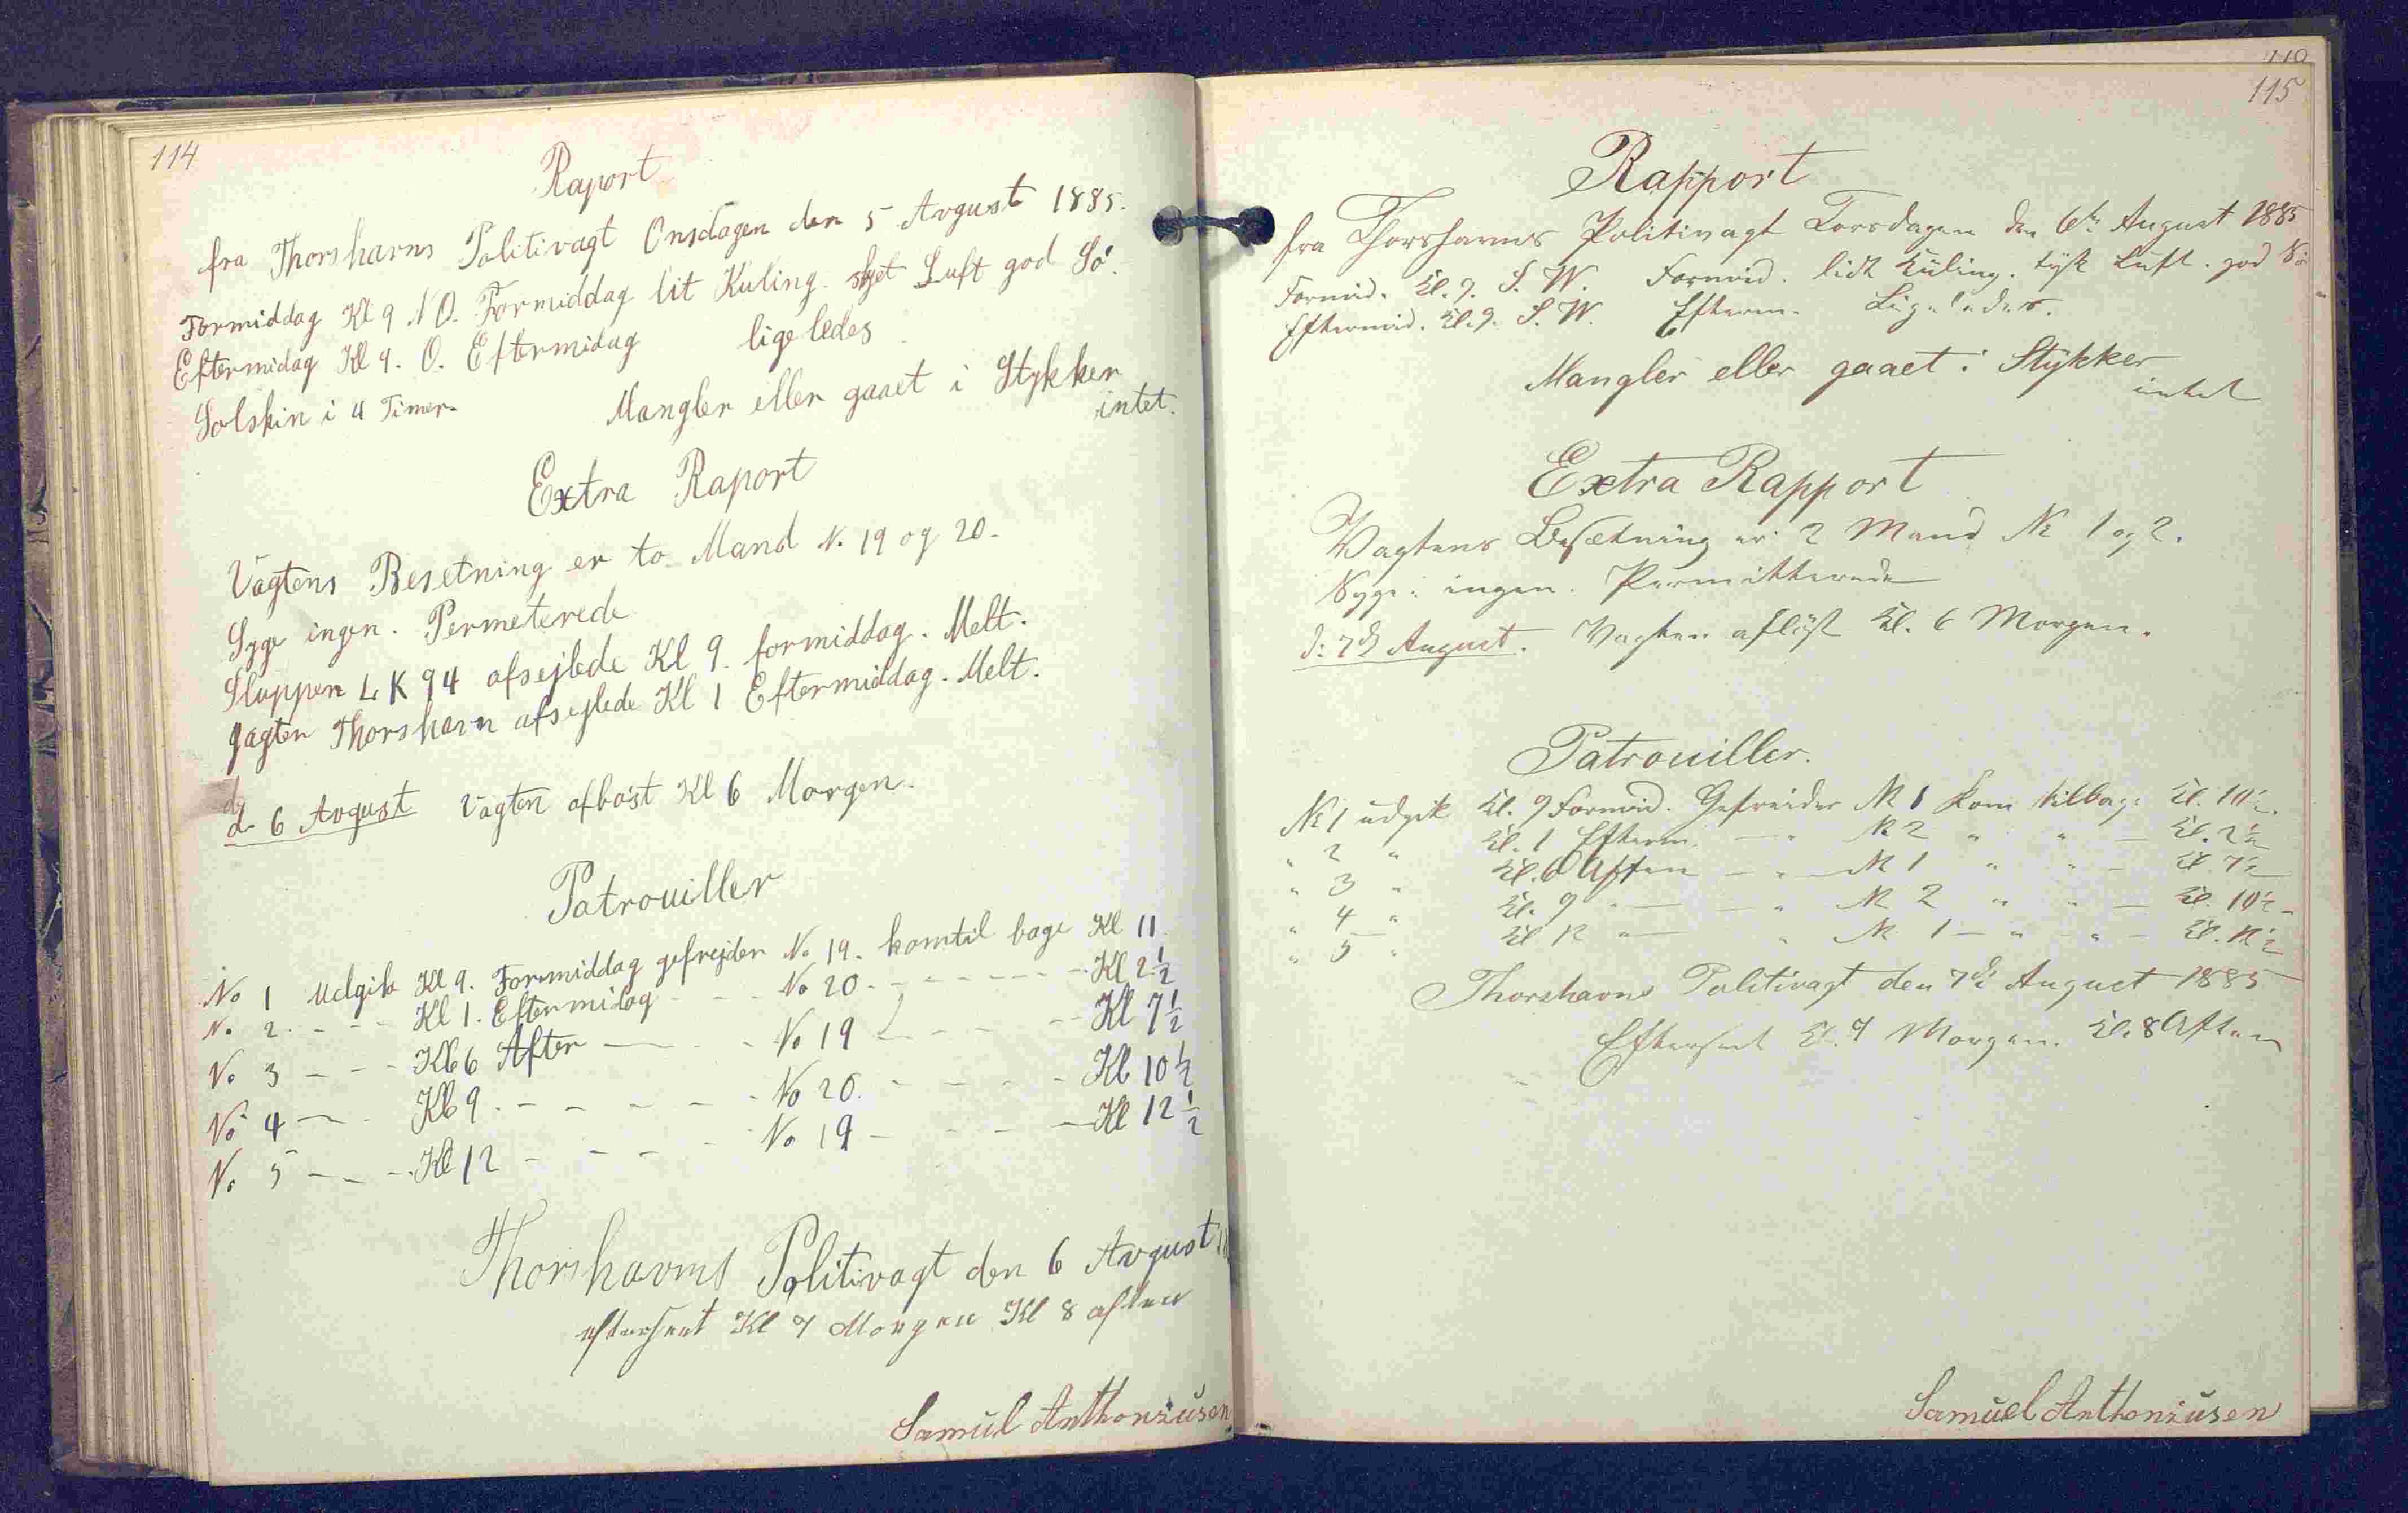 114
Raport
fra Thorshavns Politivagt Onsdagen den 5 August 1885.
Formiddag Kl 9 NO. Formiddag lit Kuling. skyet Luft god Sö.
Eftermidag Kl 9. O. Eftermidag ligeledes
Solskin i 4 Timer.
Mangler eller gaaet i Stykker
intet.
Extra Raport
Vagtens Besetning er to Mand N. 19 og 20.
Syge ingen. Permeterede
Sluppen LK 94 afsejlede Kl 9. formiddag. Melt.
Jagten Thorshavn afsejlede Kl 1 Eftermiddag. Melt.
d. 6 August Vagten aflöst Kl 6 Morgen.
Patrouiller
No 1 Udgik Kl 9. Formiddag gefrejder No 19. kom til bage Kl 11
No 2. - - - Kl 1. Eftermidag - - - No 20. - - - - - - Kl 2½
No 3 - - - Kl 6 Aften - - - No 19 - - - - Kl 7½
No 4 - - Kl 9. - - - - - No 20. - - - - Kl 10½
No 5 - - - Kl 12 - - - - - No 19 - - - - Kl 12½
Thorshavns Politivagt den 6 August
efterseet Kl 7 Morgen Kl 8 aften
Samul Anthoniusen
110
115
Rapport
fra Thorshavns Politivagt Torsdagen den 6te August 1885
Formid. Kl. 9. S. W. Formid. lidt Kuling. tyk Luft. god Sö
Eftermid. Kl. 9. S. W. Efterm. Ligeledes.
Mangler eller gaaet i Stykker
intet
Extra Rapport
Vagtens Besætning er: 2 Mand No 1 og 2.
Syge: ingen. Permitterede
d: 7d August. Vagten aflöst Kl. 6 Morgen.
Patrouiller.
No 1 udgik Kl. 9 Formid. Gefreider No 1 kom tilbage Kl. 10½.
" 2 " Kl. 1 Efterm. — " No 2 " " — Kl. 2½
" 3 " Kl. 6 Aften — " — No 1 " " — Kl. 7½
" 4 " Kl. 9 " — — " No 2 " " — Kl. 10½
" 5 " Kl 12 " — " No 1 — " " — Kl. 12½
Thorshavns Politivagt den 7de August 1885
Efterseet Kl. 7 Morgen. Kl. 8 Aften
Samuel Anthoniusen